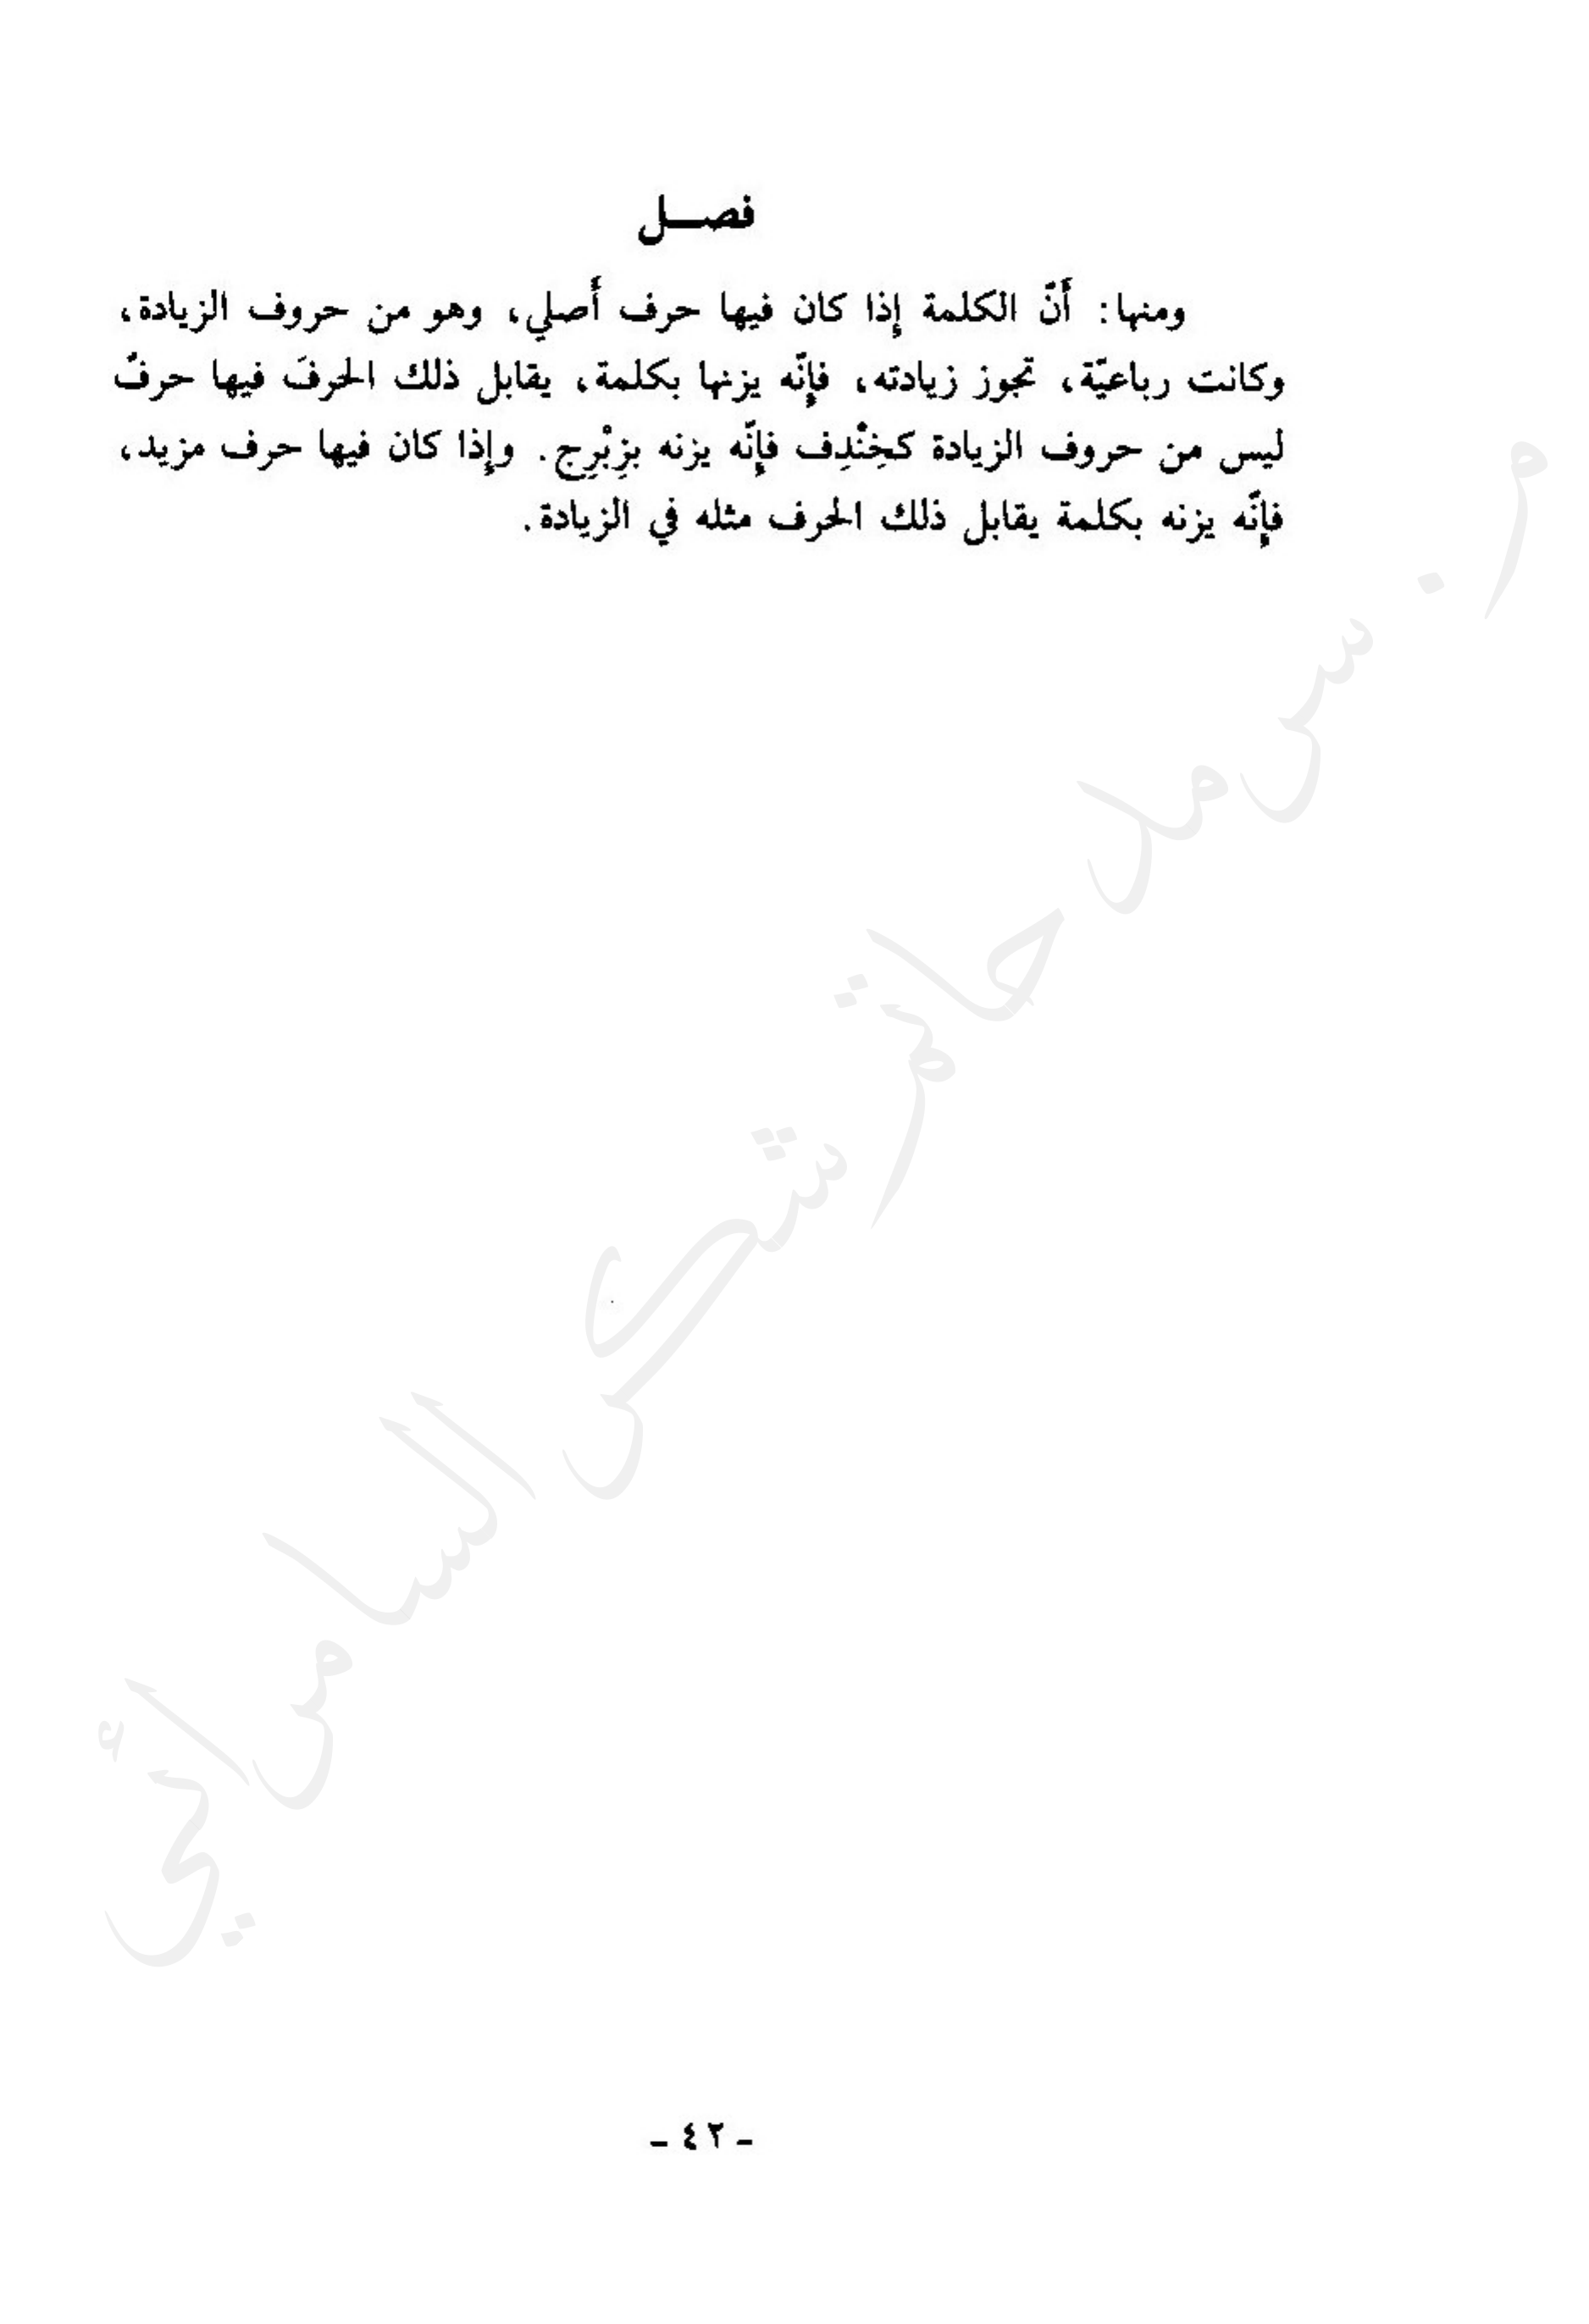 فصـــل
ومنها: أَنّ الكلمة إِذا كان فيها حرف أَصلي، وهو من حروف الزيادة،
وكانت رباعيّة، تجوز زيادته، فإِنّه يزنها بكلمة، يقابل ذلك الحرفَ فيها حرفٌ
ليس من حروف الزيادة كخِنْدِف فإِنّه يزنه بزِبْرِج. وإِذا كان فيها حرف مزيد،
فإِنّه يزنه بكلمة يقابل ذلك الحرف مثله في الزيادة.
م. سرمد حاتم شكر السامرائي
- ٤٢ -